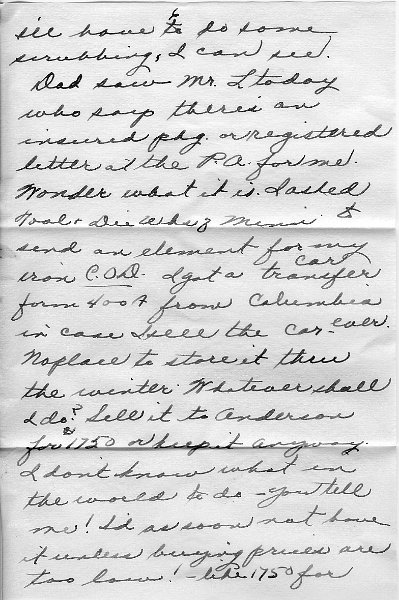 I'll have to do some
scrubbing, I can see.
Dad saw Mr. L today
who says there's an
insured pkg. or registered
letter at the P.O. for me.
Wonder what it is. I asked
Tool + Die Wks of Minn to
send an element for my
iron C.O.D. I got a car transfer
form 4004 from Columbia
in case I sell the car ever.
No place to store it thru
the winter. Whatever shall
I do? Sell it to Anderson
for 1750 or keep it anyway.
I don't know what in
the world to do - you tell
me! I'd as soon not have
it unless buying prices are
too low! - like 1750 for